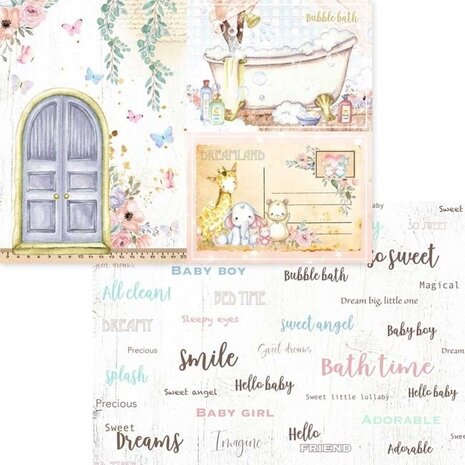 Bubble bath
DREAMLAND
SO SWEET
so sweet
BABY BOY
Bubble bath
Magical
All clean!
BED TIME
Dream big, little one
DREAMY
Sleepy eyes
sweet angel
Baby boy
Precious
smile
Sweet dreams
Bath time
splash
Sweet angel
Hello baby
Sweet little lullaby
Hello baby
Precious
BABY GIRL
ADORABLE
Sweet
Dreams
Imagine
Hello
FRIEND
Adorable